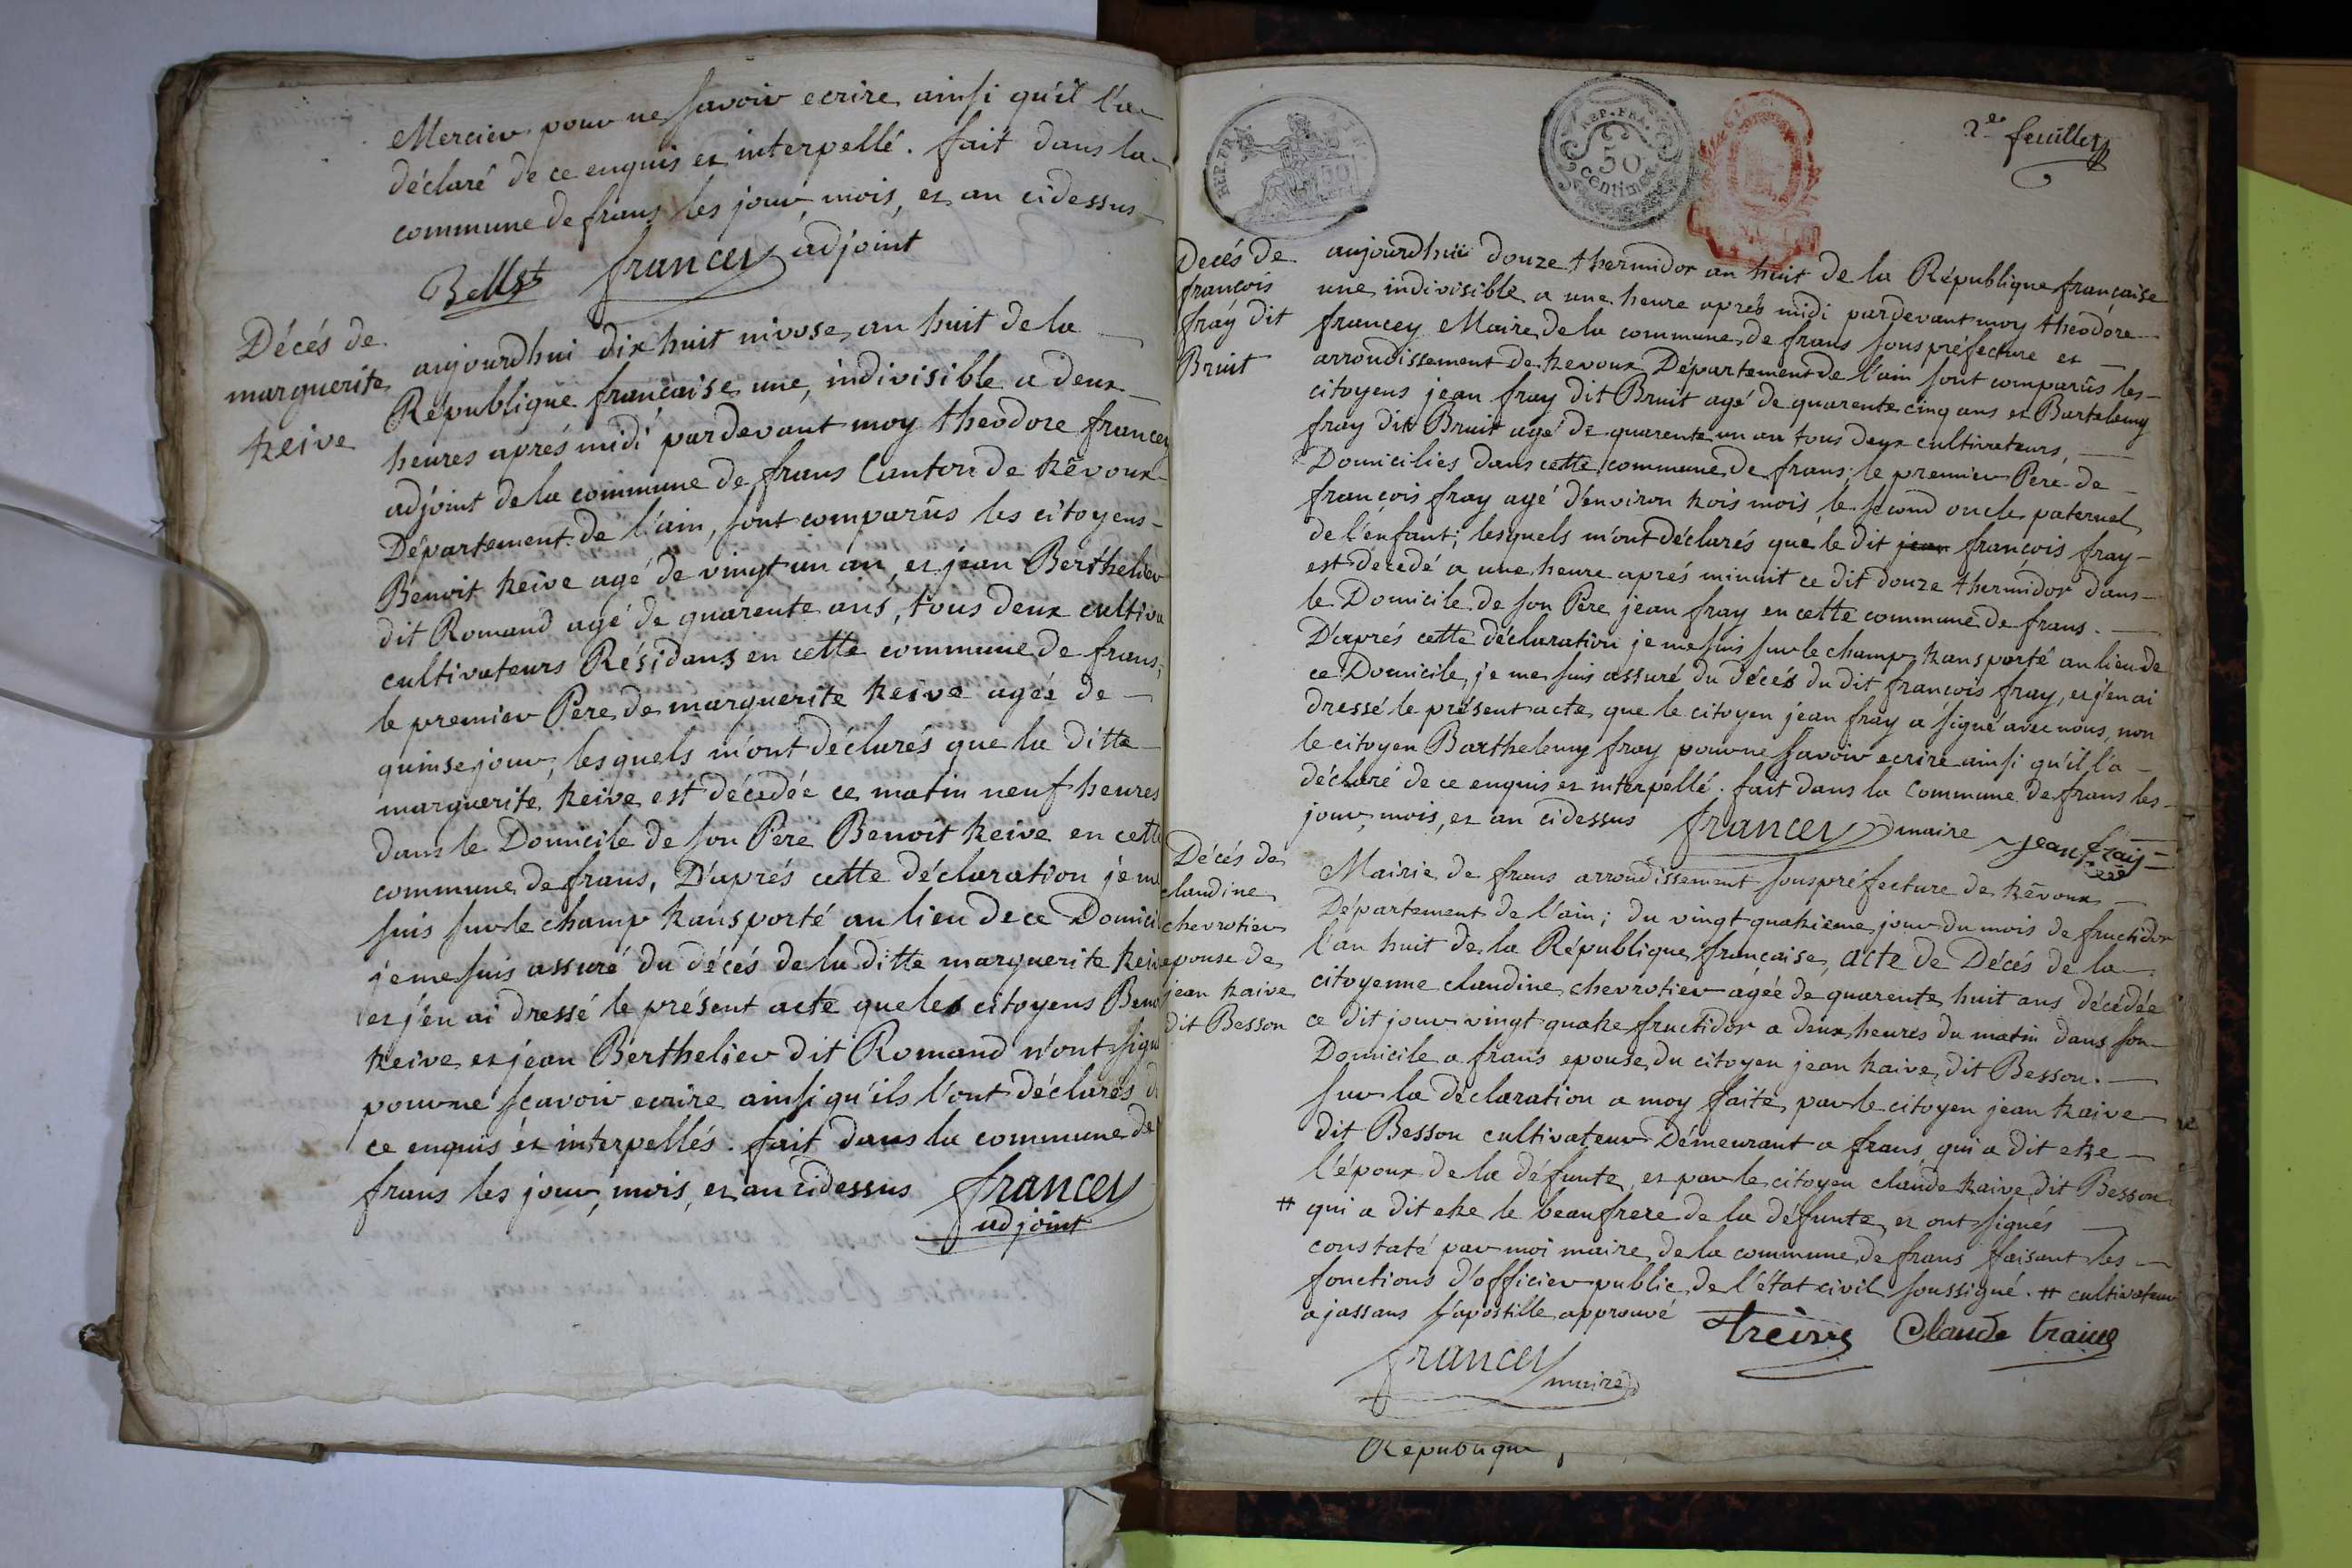 Mercier pour ne savoir ecrire ainsi qu'il l'a
déclaré de ce enquis et interpellé. fait dans la
commune de frans les jour, mois, et an cidessus
francey adjoint
Décés de
marguerite
treive
aujourdhui dix huit nivose an huit de la
République francaise une, indivisible a deux
heures aprés midi pardevant moy theodore francey
adjoint de la commune de frans Canton de trévoux
Département de l'ain, sont comparûs les citoyens
Benoit treive agé de vingt un an, et jean Berthelier
dit Romand agé de quarente ans, tous deux cultiva
cultivateurs Résidans en cette commune de frans,
le premier Pere de marguerite treive agée de
quinse jour, lesquels m'ont déclarés que la ditte
marguerite treive est décédée ce matin neuf heures
dans le Domicile de son Pere Benoit treive en cette
commune de frans, D'aprés cette déclaration je me
suis sur le champ transporté au lieu de ce Domici
je me suis assuré du décés de la ditte marguerite treive
et j'en ai dressé le présent acte que les citoyens Beno
treive et jean Berthelier dit Romand n'ont signé
pour ne scavoir ecrire ainsi qu'ils l'ont déclarés de
ce enquis et interpellés. fait dans la commune de
frans les jour, mois, et an cidessus francey
adjoint
REP. FRA.
REP. FRA.
50
centimes
2e feuillet
Decés de
françois
fray dit
Bruit
aujourdhui douze thermidor an huit de la République française
une, indivisible a une heure aprés midi pardevant moy theodore
francey Maire de la commune de frans sous préfecture et
arrondissement de trevoux Département de l'ain sont comparûs les
citoyens jean fray dit Bruit agé de quarente cinq ans et Bartelemy
fray dit Bruit agé de quarente un an tous deux cultivateurs,
Domiciliés dans cette commune de frans; le premier Pere de
françois fray agé d'environ trois mois, le second oncle paternel
de l'enfant; lesquels m'ont déclarés que le dit jean françois fray
est decedé a une heure aprés minuit ce dit douze thermidor dans
le Domicile de son Pere jean fray en cette commune de frans.
D'aprés cette déclaration je me suis sur le champ transporté au lieu de
ce Domicile, je me suis assuré du décés du dit françois fray, et j'en ai
dressé le présent acte que le citoyen jean fray a signé avec nous, non
le citoyen Barthelemy fray pour ne savoir ecrire ainsi qu'il l'a
déclaré de ce enquis et interpellé. fait dans la Commune de frans les
jour, mois, et an cidessus francey maire jean fraÿ
Décés de
claudine
chevrotier
epouse de
jean traive
dit Besson
Mairie de frans arrondissement souspréfecture de trévoux
Département de l'ain; du vingt quatrieme jour du mois de fructidor
l'an huit de la République française, acte de Décés de la
citoyenne claudine chevrotier agée de quarente huit ans décédée
ce dit jour vingt quatre fructidor a deux heures du matin dans son
Domicile a frans epouse du citoyen jean traive dit Besson.
sur la déclaration a moy faite par le citoyen jean traive
dit Besson cultivateur Démeurant a frans qui a dit etre
l'époux de la défunte, et par le citoyen claude traive dit Besson
# qui a dit etre le beaufrere de la défunte, et ont signés
constaté par moi maire de la commune de frans faisant les
fonctions d'officier public de l'état civil soussigné. # cultivateur
a jassans l'apostille approuvé treive Claude traive
francey maire
République